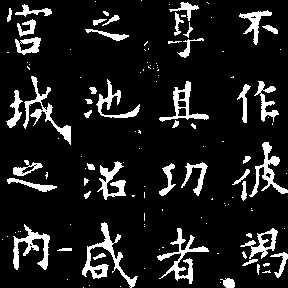 不作彼竭
享其功者
之池沼咸
宮城之内